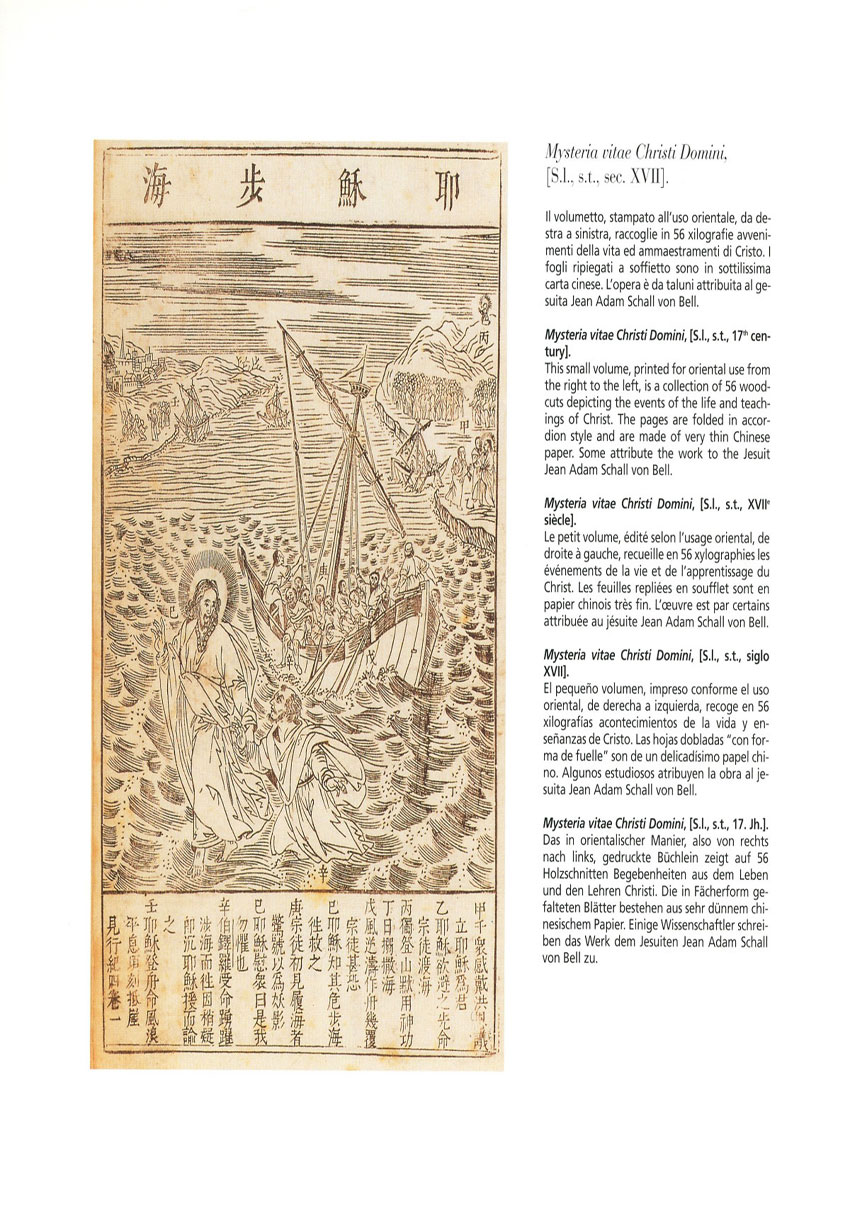 耶穌步海
丙
甲
庚
巳
辛
戊
丁
辛
甲千衆感戴洪議
立耶穌爲君
乙耶穌欲避之先命
宗徒渡海
丙獨登山默用神功
丁日撒海
戊風逆濤作舟幾覆
宗徒甚恐
巳耶穌知其危步海
徃救之
庚宗徒初見履海者
驚號以爲妖影
巳耶穌慰衆曰是我
勿懼也
辛伯鐸羅受命踴躍
涉海而徃因稍疑
即沉耶穌援而諭
之
壬耶穌登舟命風浪
平息刻抵崖
見行紀四卷一
Mysteria vitae Christi Domini,
[S.l., s.t., sec. XVII].
Il volumetto, stampato all'uso orientale, da de-
stra a sinistra, raccoglie in 56 xilografie avveni-
menti della vita ed ammaestramenti di Cristo. I
fogli ripiegati a soffietto sono in sottilissima
carta cinese. L'opera è da taluni attribuita al ge-
suita Jean Adam Schall von Bell.
Mysteria vitae Christi Domini, [S.l., s.t., 17th cen-
tury].
This small volume, printed for oriental use from
the right to the left, is a collection of 56 wood-
cuts depicting the events of the life and teach-
ings of Christ. The pages are folded in accor-
dion style and are made of very thin Chinese
paper. Some attribute the work to the Jesuit
Jean Adam Schall von Bell.
Mysteria vitae Christi Domini, [S.l., s.t., XVIIe
siècle].
Le petit volume, édité selon l'usage oriental, de
droite à gauche, recueille en 56 xylographies les
événements de la vie et de l'apprentissage du
Christ. Les feuilles repliées en soufflet sont en
papier chinois très fin. L'œuvre est par certains
attribuée au jésuite Jean Adam Schall von Bell.
Mysteria vitae Christi Domini, [S.l., s.t., siglo
XVII].
El pequeño volumen, impreso conforme el uso
oriental, de derecha a izquierda, recoge en 56
xilografías acontecimientos de la vida y en-
señanzas de Cristo. Las hojas dobladas "con for-
ma de fuelle" son de un delicadísimo papel chi-
no. Algunos estudiosos atribuyen la obra al je-
suita Jean Adam Schall von Bell.
Mysteria vitae Christi Domini, [S.l., s.t., 17. Jh.].
Das in orientalischer Manier, also von rechts
nach links, gedruckte Büchlein zeigt auf 56
Holzschnitten Begebenheiten aus dem Leben
und den Lehren Christi. Die in Fächerform ge-
falteten Blätter bestehen aus sehr dünnem chi-
nesischem Papier. Einige Wissenschaftler schrei-
ben das Werk dem Jesuiten Jean Adam Schall
von Bell zu.